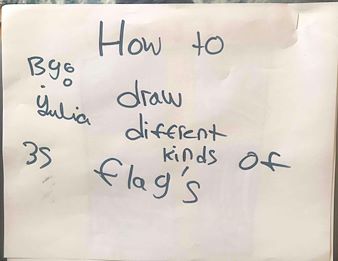 How to
By:
Yulia
draw
different
kinds of
3S
flag's